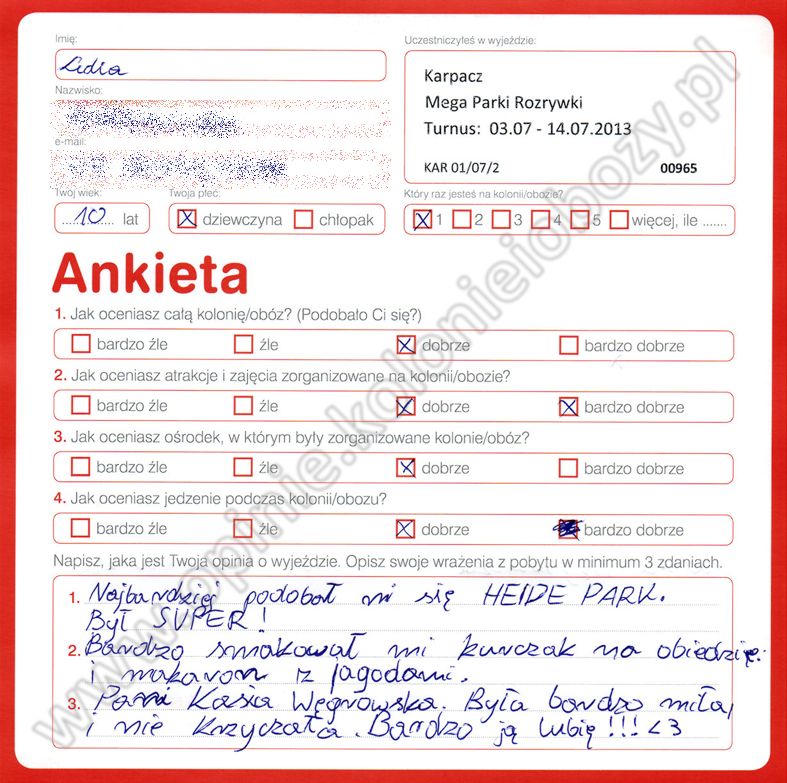 Imię:
Lidia
Nazwisko:
e-mail:
Twój wiek:
10 lat
Twoja płeć:
dziewczyna chłopak
Uczestniczyłeś w wyjeździe:
Karpacz
Mega Parki Rozrywki
Turnus: 03.07 - 14.07.2013
KAR 01/07/2 00965
Który raz jesteś na kolonii/obozie?
1 2 3 4 5 więcej, ile .......
Ankieta
1. Jak oceniasz całą kolonię/obóz? (Podobało Ci się?)
bardzo źle źle dobrze bardzo dobrze
2. Jak oceniasz atrakcje i zajęcia zorganizowane na kolonii/obozie?
bardzo źle źle dobrze bardzo dobrze
3. Jak oceniasz ośrodek, w którym były zorganizowane kolonie/obóz?
bardzo źle źle dobrze bardzo dobrze
4. Jak oceniasz jedzenie podczas kolonii/obozu?
bardzo źle źle dobrze bardzo dobrze
Napisz, jaka jest Twoja opinia o wyjeździe. Opisz swoje wrażenia z pobytu w minimum 3 zdaniach.
1. Najbardziej podobał mi się HEIDE PARK.
Był SUPER!
2. Bardzo smakował mi kurczak na obiedzie.
i makaron z jagodami.
3. Pani Kasia Węgrowska. Była bardzo miła,
i nie krzyczała. Bardzo ją lubię!!! <3
www.opinie.kolonieiobozy.pl